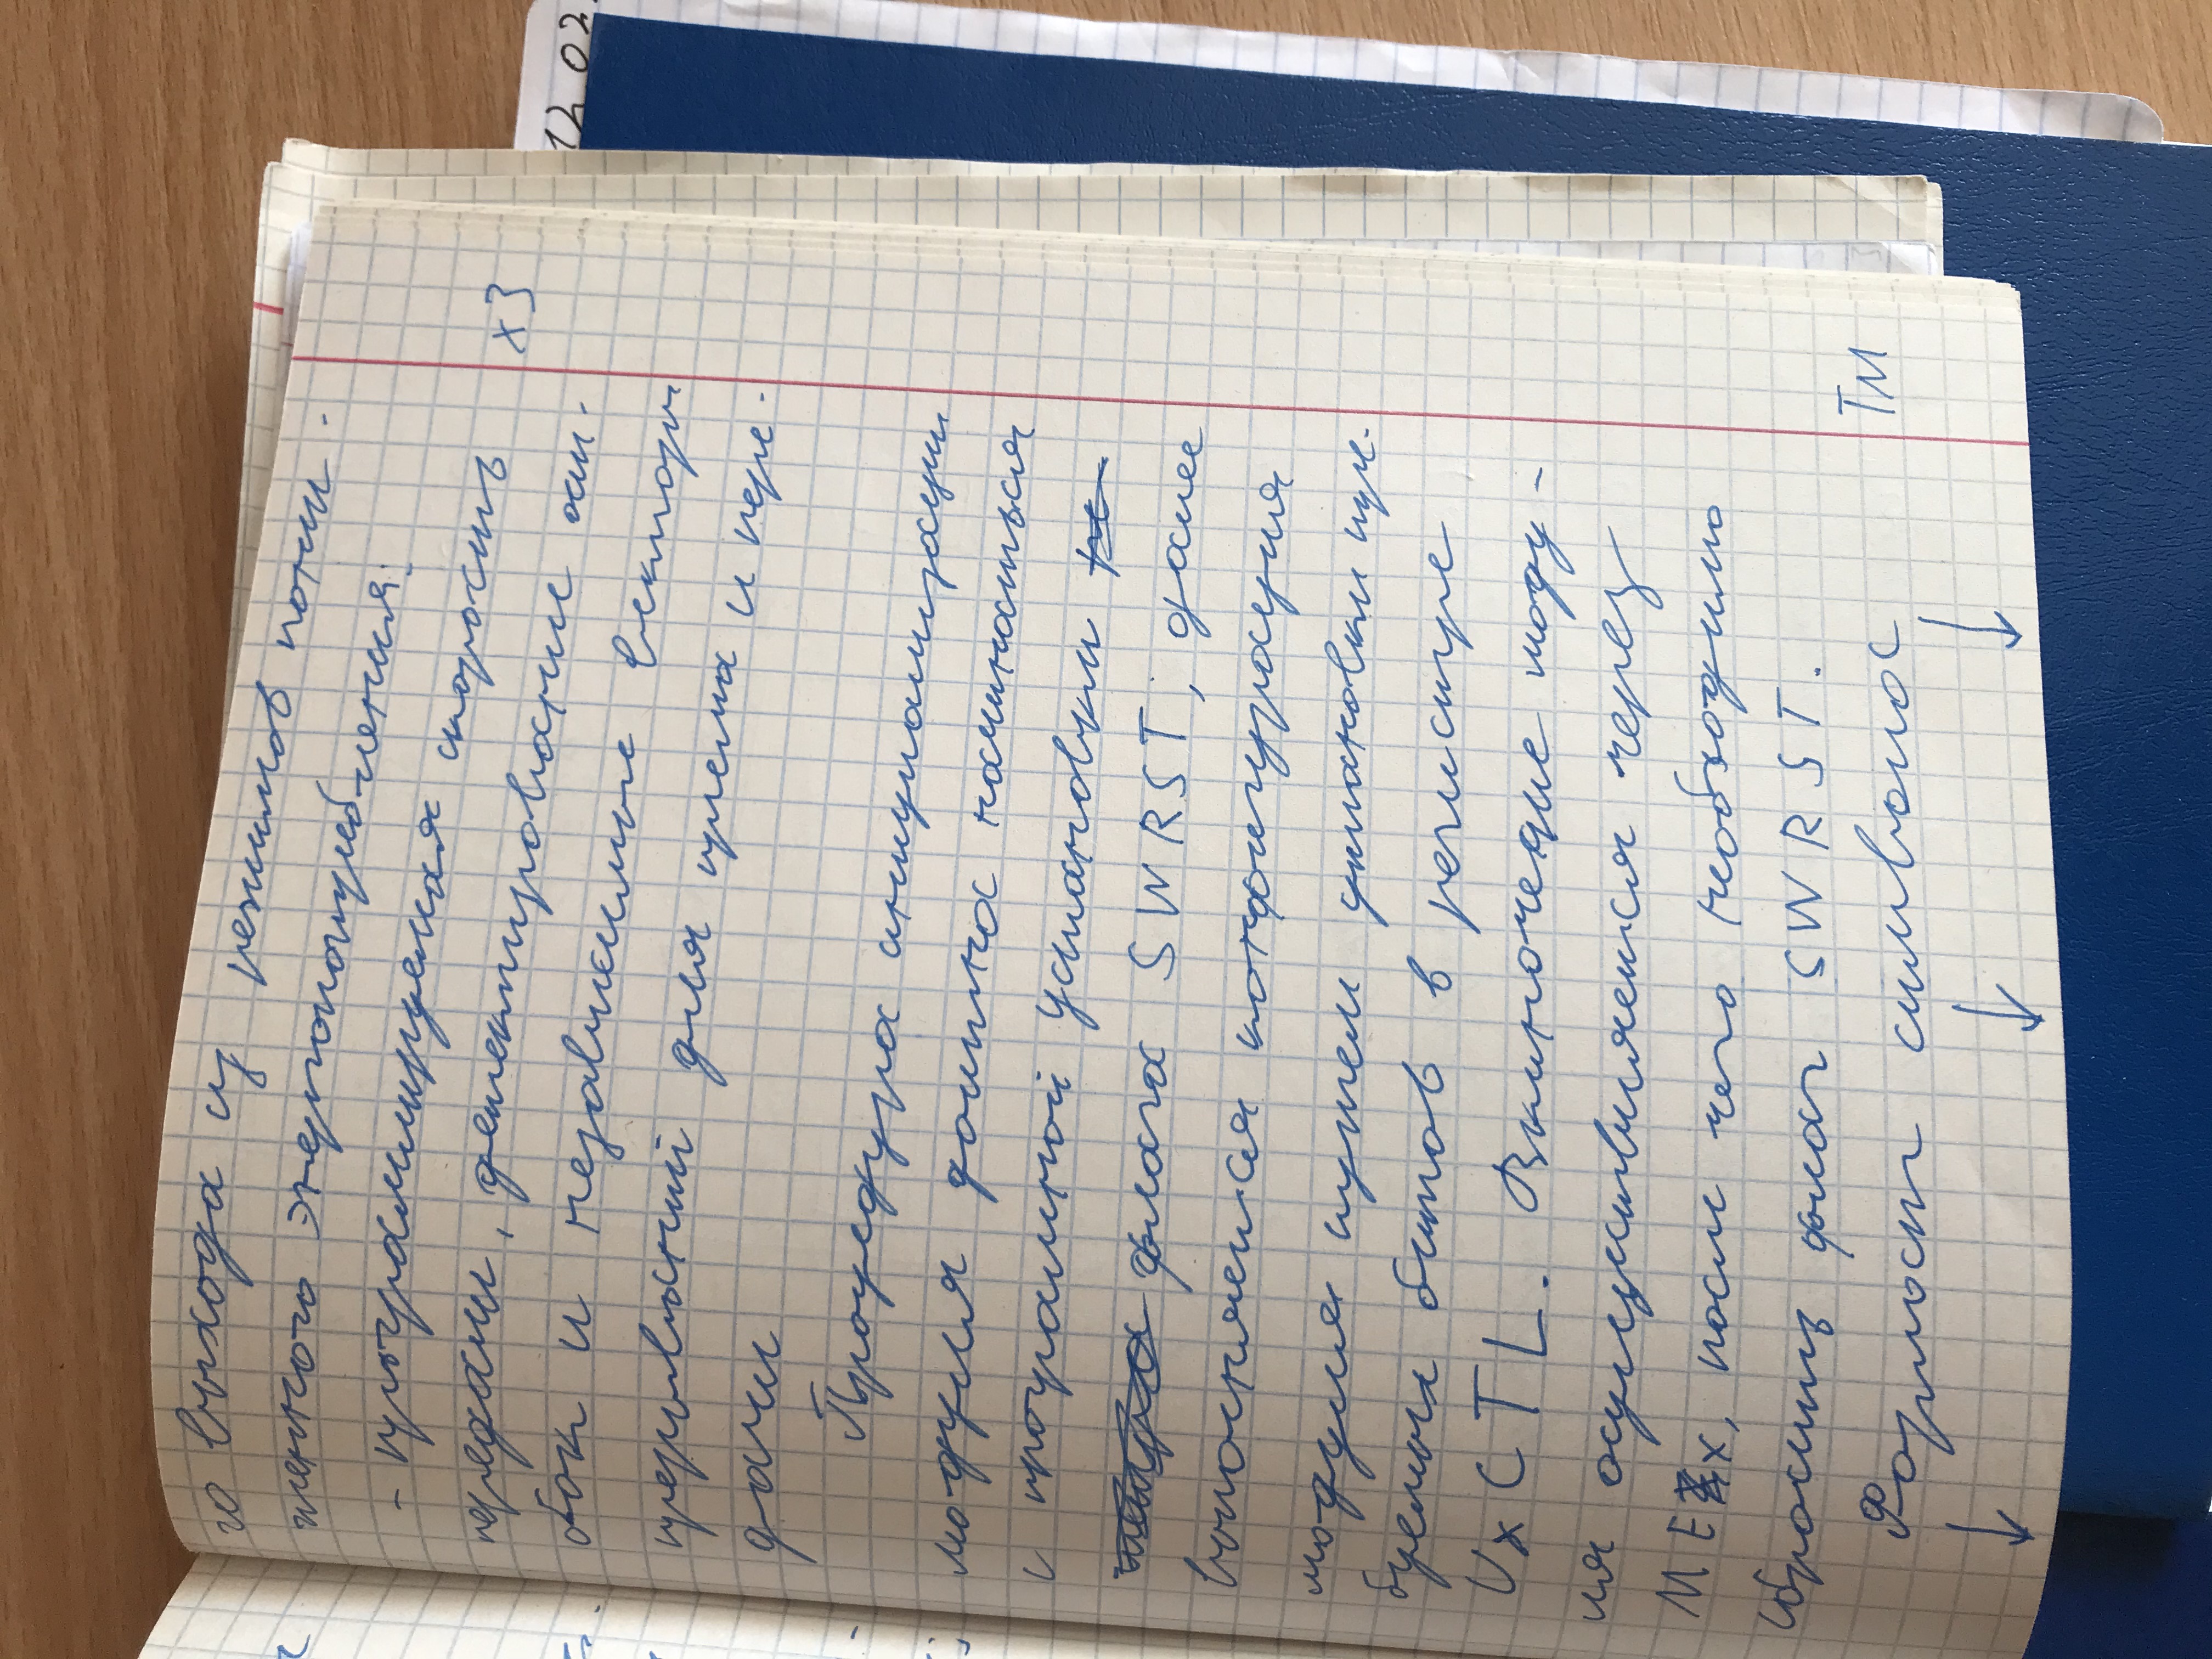 го выхода из режимов пони-
женного энергопотребления;
- программируемая скорость
передачи, детектирование оши-
x3
бок и независимые векторы
12 02.
прерываний для приема и пере-
дачи
Процедура инициализации
модуля должна начинаться
с програмной установки
флага SWRST; далее
выполняется конфигурация
модуля путем установки тре-
буемых битов в регистре
UxCTL. Включение моду-
ля осуществляется через
MEx, после чего необходимо
сбросить флаг SWRST.
Формат символа
TM